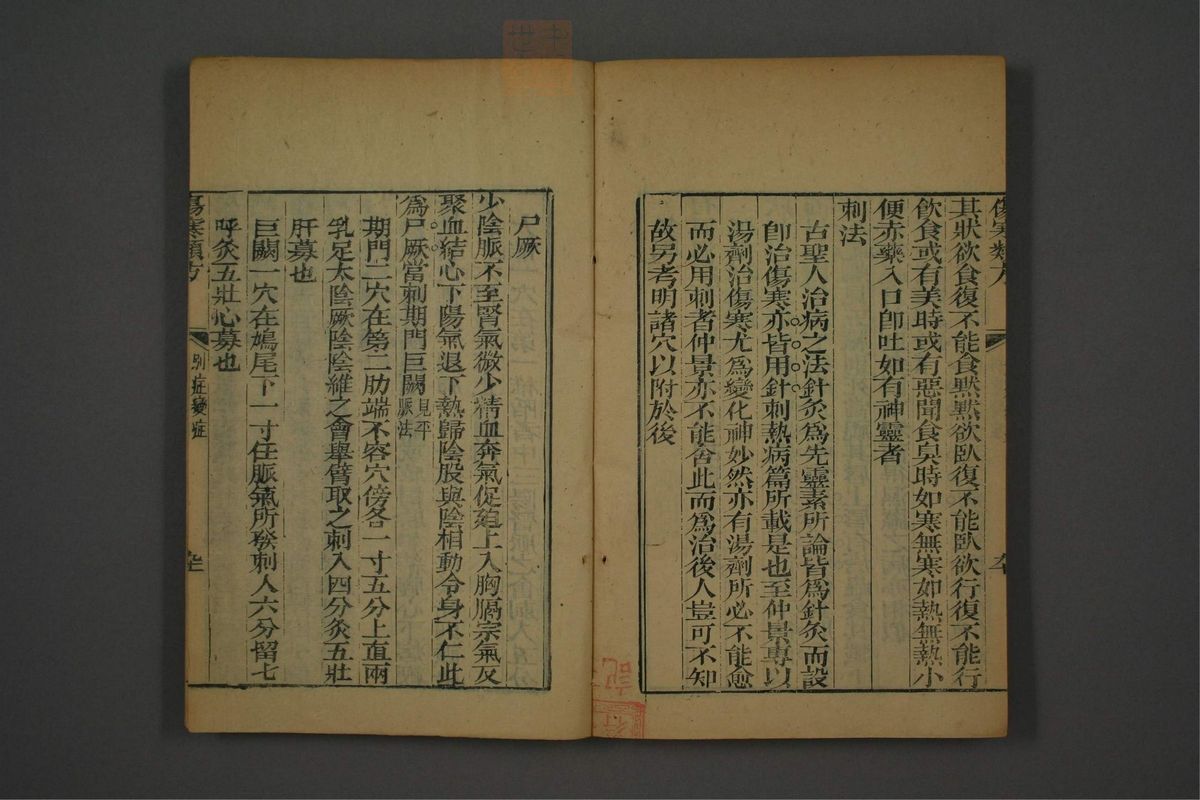 傷寒類方
其狀欲食復不能食默默欲臥復不能臥欲行復不能行
飲食或有美時或有惡聞食臭時如寒無寒如熱無熱小
便赤藥入口卽吐如有神靈者
刺法
古聖人治病之法針灸爲先靈素所論皆爲針灸而設
卽治傷寒亦皆用針刺熱病篇所載是也至仲景專以
湯劑治傷寒尤爲變化神妙然亦有湯劑所必不能愈
而必用刺者仲景亦不能舍此而爲治後人豈可不知
故另考明諸穴以附於後
尸厥
少陰脈不至腎氣微少精血奔氣促迫上入胸膈宗氣反
聚血結心下陽氣退下熱歸陰股與陰相動令身不仁此
爲尸厥當刺期門巨闕見平脈法
期門二穴在第二肋端不容穴傍各一寸五分上直兩
乳足太陰厥陰陰維之會舉臂取之刺入四分灸五壯
肝募也
巨闕一穴在鳩尾下一寸任脈氣所發刺入六分留七
呼灸五壯心募也
傷寒類方
別症變症